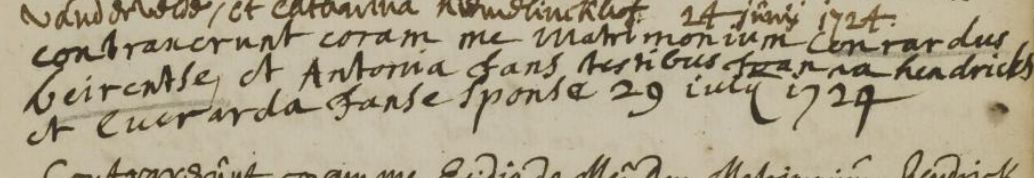 vandervelde, et Catharina 24 junij 1724.
contraxerunt coram me matrimonium Conrardus
beirentse, et Antonia Jans testibus Joanna hendricks
et Everarda Janse sponse 29 iulij 1724
coram me Matrimonium Hendrick